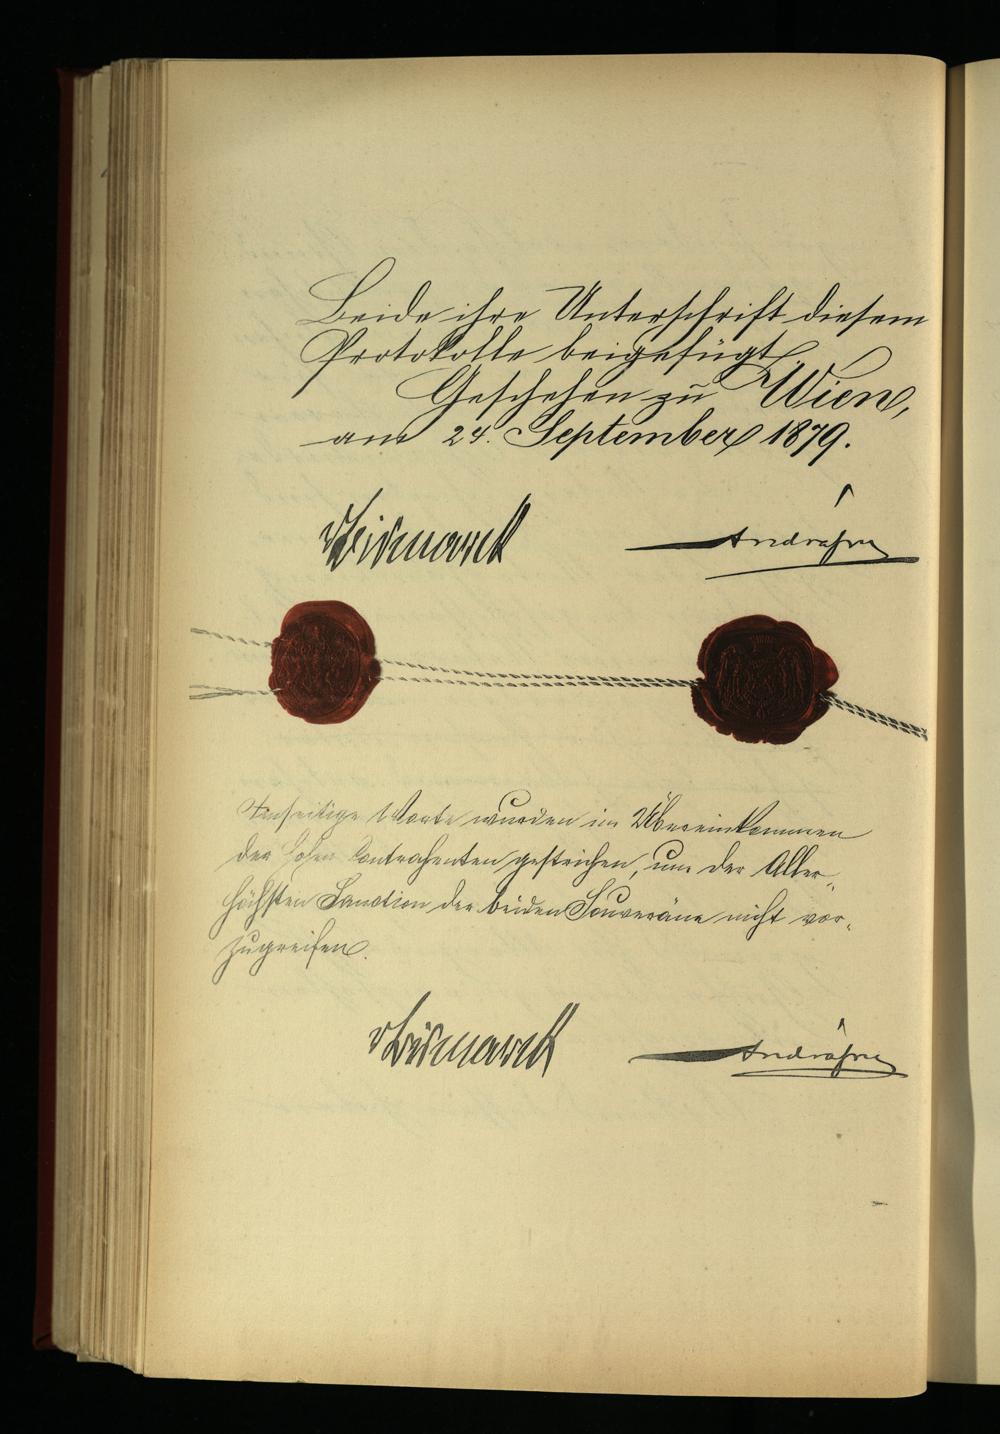 Beide ihre Unterschrift diesem
Protokolle beigefügt.
Geschehen zu Wien,
am 24. September 1879.
vBismarck
Andrássy
Worte wurden im Übereinkommen
der hohen Contrahenten gestrichen, um der Aller-
höchsten Sanction der beiden Souveräne nicht vor-
zugreifen.
vBismarck
Andrássy